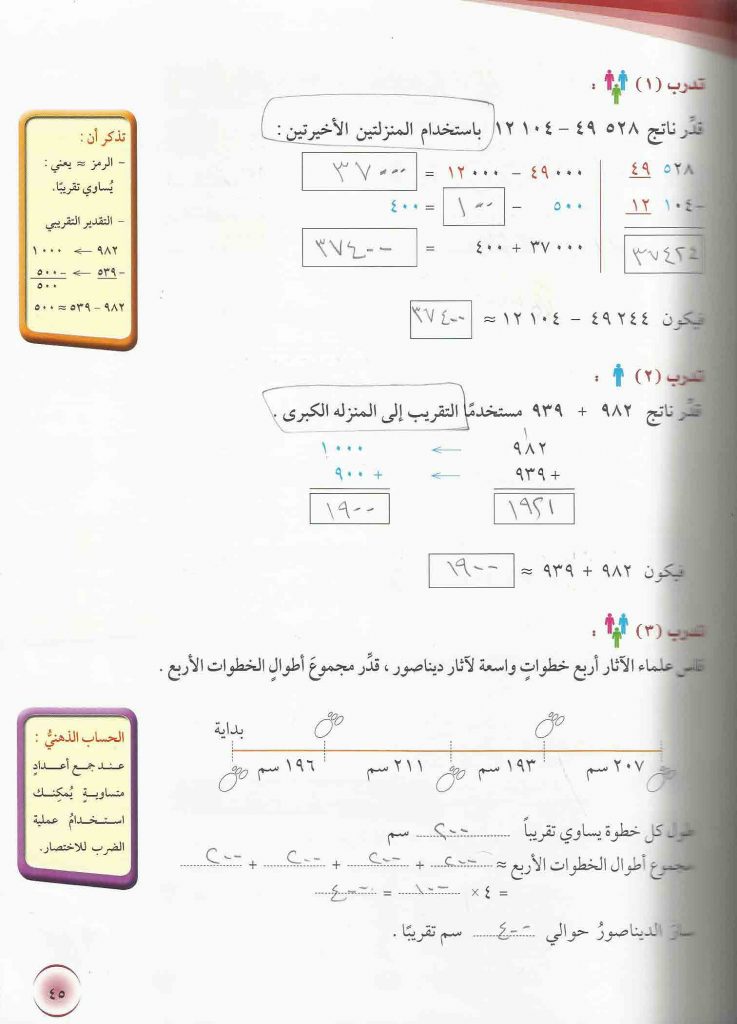 تدرب (١) :
قدِّر ناتج ٥٢٨ ٤٩ – ١٠٤ ١٢ باستخدام المنزلتين الأخيرتين :
٥٢٨ ٤٩ ٤٩٠٠٠ – ١٢٠٠٠ = ٣٧٠٠٠
–١٠٤ ١٢ ٥٠٠ – ١٠٠ = ٤٠٠
٣٧٤٢٤ ٣٧٠٠٠ + ٤٠٠ = ٣٧٤٠٠
فيكون ٢٤٤ ٤٩ – ١٠٤ ١٢ ≈ ٣٧٤٠٠
تذكر أن :
– الرمز ≈ يعني :
يُساوي تقريبًا.
– التقدير التقريبي
٩٨٢ ← ١٠٠٠
–٥٣٩ ← –٥٠٠
٥٠٠
٩٨٢ – ٥٣٩ ≈ ٥٠٠
تدرب (٢) :
قدِّر ناتج ٩٨٢ + ٩٣٩ مستخدمًا التقريب إلى المنزله الكبرى .
١
٩٨٢ ← ١٠٠٠
+ ٩٣٩ ← + ٩٠٠
١٩٢١ ١٩٠٠
فيكون ٩٨٢ + ٩٣٩ ≈ ١٩٠٠
تدرب (٣) :
قاس علماء الآثار أربع خطواتٍ واسعة لآثار ديناصور ، قدِّر مجموعَ أطوالِ الخطوات الأربع .
بداية
٢٠٧ سم ١٩٣ سم ٢١١ سم ١٩٦ سم
طول كل خطوة يساوي تقريباً ٢٠٠ سم
مجموع أطوال الخطوات الأربع ≈ ٢٠٠ + ٢٠٠ + ٢٠٠ + ٢٠٠
= ٤ × ١٠٠ = ٤٠٠
سارَ الديناصورُ حوالي ٤٠٠ سم تقريبًا .
الحساب الذهنيُّ :
عند جمع أعدادٍ
متساويةٍ يُمكِنك
استخدامُ عملية
الضرب للاختصار.
٤٥